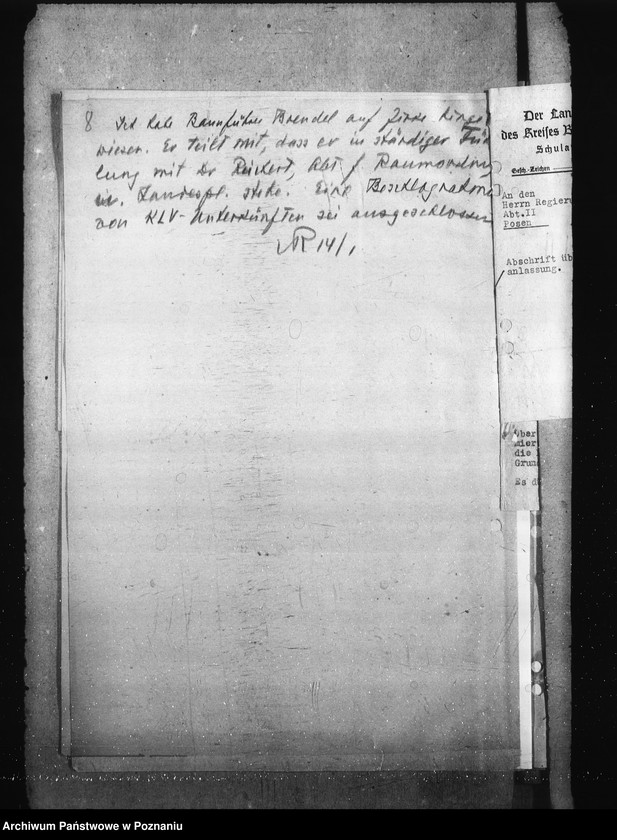 8 Ich habe Bannführer Brendel auf
wiesen. Er teilt mit, dass er in ständiger Füh
lung mit Dr Reichert, Abt. f. Raumordnung
u. Landespl. stehe. Eine Beschlagnahme
von KLV-Unterkünften sei ausgeschlossen
14/1
Der Lan
des Kreises
Schula
Gesch.-Zeichen
An den
Herrn Regieru
Abt.II
Posen
Abschrift üb
anlassung.
über
mier
die
Grun
Es d
Archiwum Państwowe w Poznaniu